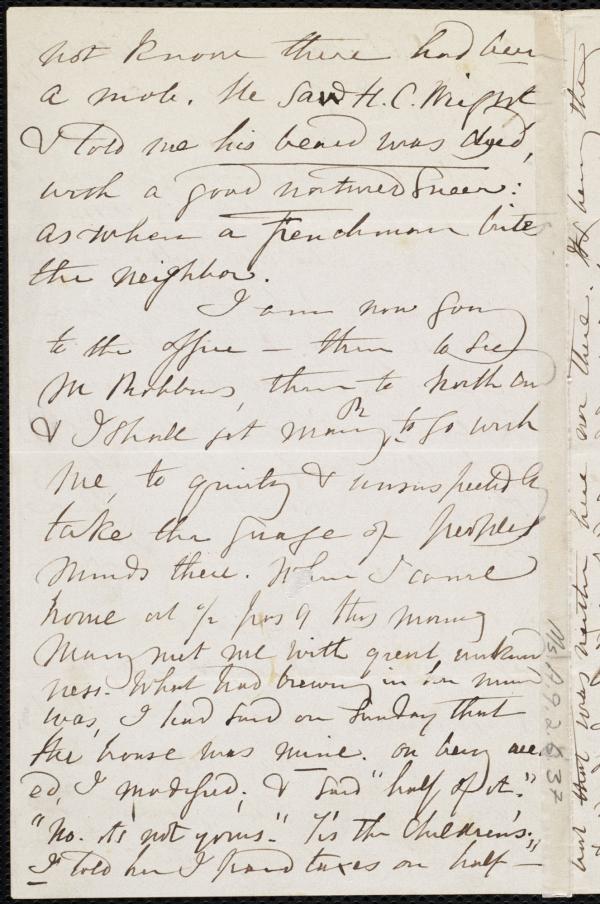 not know there had been
a mob. He saw H. C. Wright
& told me his beard was dyed,
with a good natured sneer:
as when a frenchman bites
the neighbor.
I am now going
to the office — then to see
Mr Robbins, then to North End
& I shall get Mary to go with
me, to quietly & unsuspectedly
take the guage of peoples
minds there. When I came
home at ½ pas 9 this morning
Mary met me with great unkind
ness. What had brewing in her mind
was, I had said on Sunday that
the house was mine. on being
ed, I modified, & said "half of it."
"No. its not yours." 'Tis the Children's."
I told her I paid taxes on half —
Ms.A.9.2.8.37
but that was neither here nor there. being the